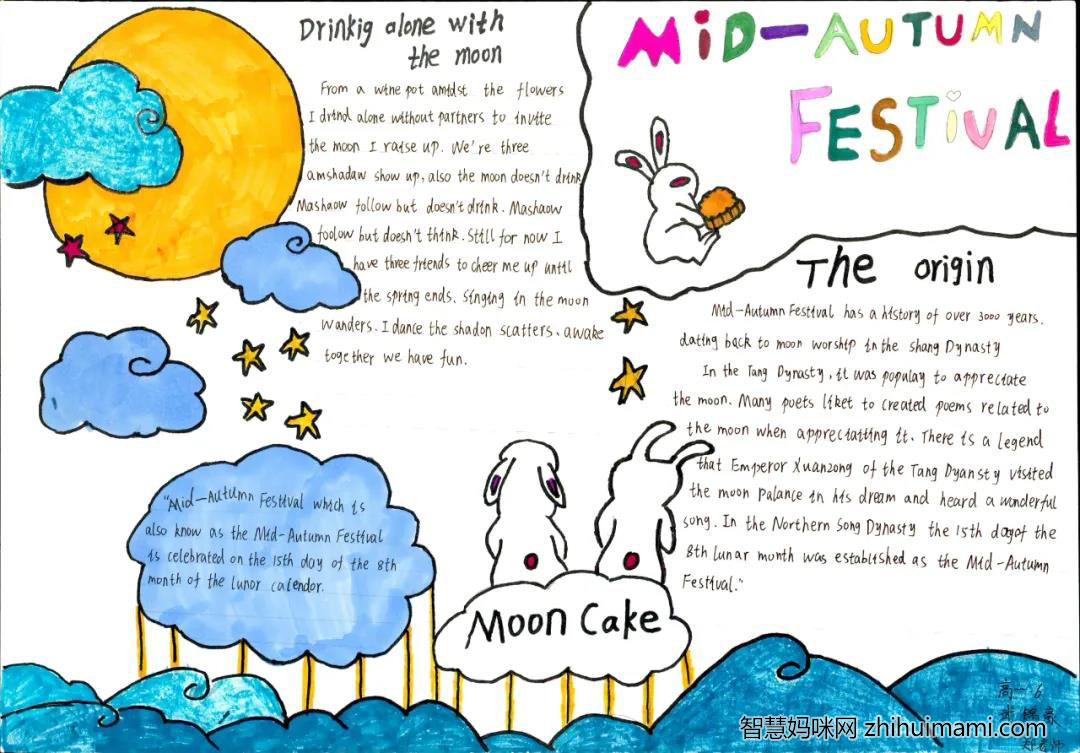 Drinkig alone with
the moon
From a wine pot amidst the flowers
I drind alone without partners to invite
the moon I raise up. We're three
amshadaw show up, also the moon doesn't drink
Mashaow follow but doesn't drink. Mashaow
foolow but doesn't think. Still for now I
have three friends to cheer me up until
the spring ends. Singing in the moon
wanders. I dance the shadon scatters, awake
together we have fun.
MiD-AUTUMN
FESTiVAL
The origin
Mid-Autumn Festival has a history of over 3000 years.
dating back to moon worship in the shang Dynasty
In the Tang Dynasty, it was populay to appreciate
the moon. Many poets liket to created poems related to
the moon when appreciatting it. There is a legend
that Emperor Xuanzong of the Tang Dyansty visited
the moon Palance in his dream and heard a wonderful
song. In the Northern Song Dynasty the 15th dayof the
8th lunar month was established as the Mid-Autumn
Festival."
"Mid-Autumn Festival which is
also know as the Mid-Autumn Festival
is celebrated on the 15th day of the 8th
month of the lunor calendor.
Moon Cake
高一6
智慧妈咪网 zhihuimami.com